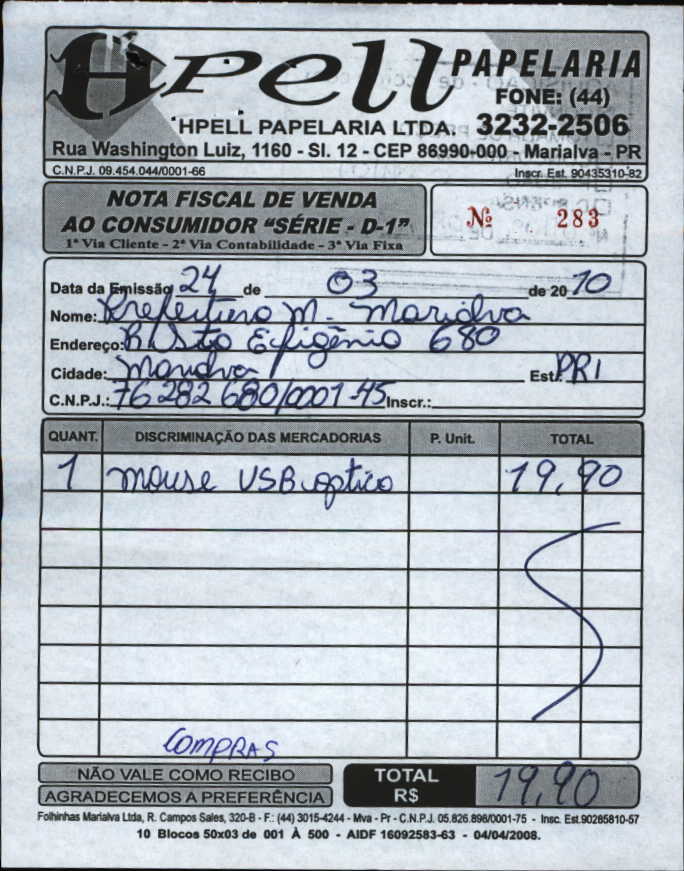 Hpell PAPELARIA
FONE: (44)
HPELL PAPELARIA LTDA. 3232-2506
Rua Washington Luiz, 1160 - Sl. 12 - CEP 86990-000 - Marialva - PR
C.N.P.J. 09.454.044/0001-66 Inscr. Est. 90435310-82
NOTA FISCAL DE VENDA
AO CONSUMIDOR “SÉRIE - D-1”
1ª Via Cliente - 2ª Via Contabilidade - 3ª Via Fixa
Nº 283
Data da Emissão 24 de 03 de 2010
Nome: Prefeitura M. Marialva
Endereço: R. Sta Efigênia 680
Cidade: Marialva Est. PR
C.N.P.J.: 76 282 680/0001-45 Inscr.:
QUANT. DISCRIMINAÇÃO DAS MERCADORIAS P. Unit. TOTAL
1 mouse USB optico 19,90
COMPRAS
NÃO VALE COMO RECIBO
AGRADECEMOS A PREFERÊNCIA
TOTAL R$ 19,90
Folhinhas Marialva Ltda, R. Campos Sales, 320-B - F.: (44) 3015-4244 - Mva - Pr - C.N.P.J. 05.826.898/0001-75 - Insc. Est.90285810-57
10 Blocos 50x03 de 001 À 500 - AIDF 16092583-63 - 04/04/2008.